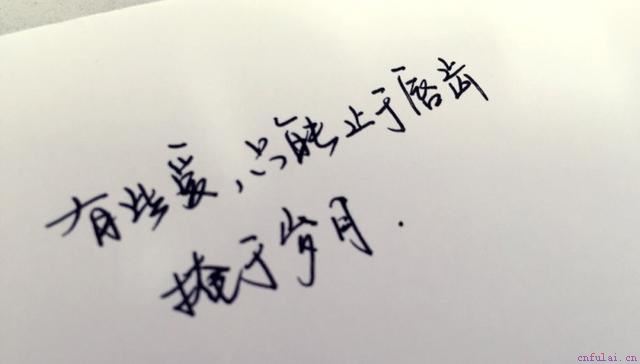 有些爱,只能止于唇齿
掩于岁月.
cnfulai.cn